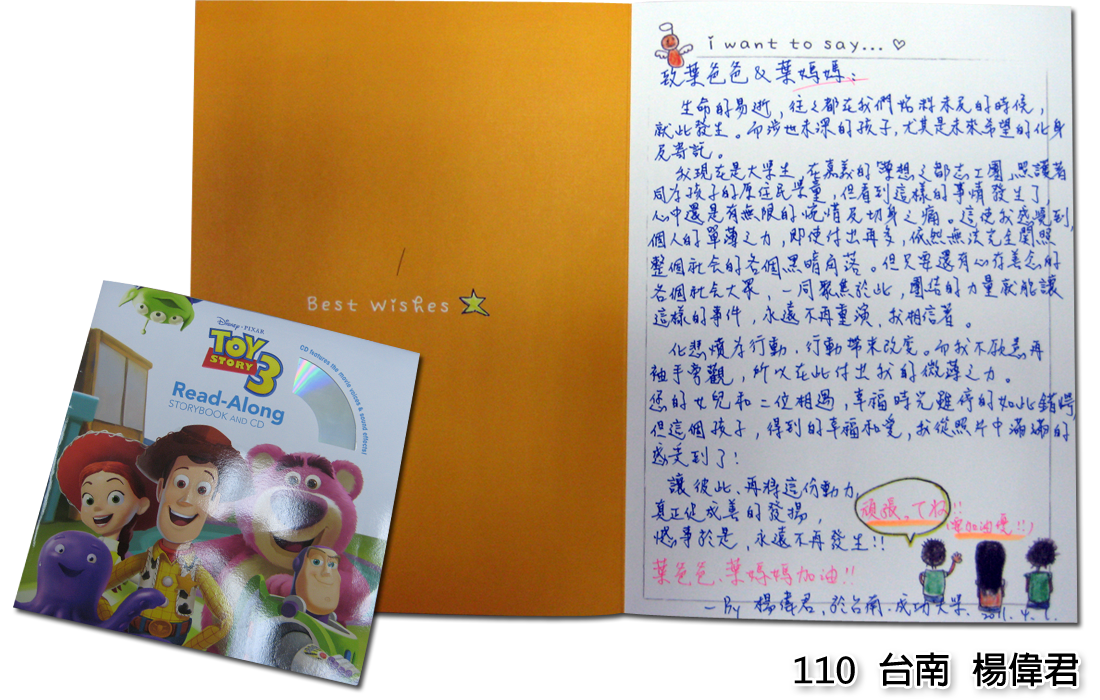 i want to say...
致葉爸爸&葉媽媽：
生命的易逝，往往都在我們始料未及的時候，
就此發生。而涉世未深的孩子，尤其是未來希望的化身
及寄託。
我現在是大學生，在嘉義的「夢想之都志工團」照護著
同為孩子的原住民學童，但看到這樣的事情發生了，
心中還是有無限的惋惜及切身之痛。這使我感覺到，
個人的單薄之力，即使付出再多，依然無法完全關照
整個社会的各個黑暗角落。但只要還有心存善念的
各個社会大眾，一同聚焦於此，團結的力量就能讓
這樣的事件，永遠不再重演，我相信著。
化悲憤為行動，行動帶來改變。而我不願意再
袖手旁觀，所以在此付出我的微薄之力。
您的女兒和二位相遇，幸福時光難得的如此錯愕
但這個孩子，得到的幸福和愛，我從照片中滿滿的
感受到了！
讓彼此、再將這份動力，
真正化成善的發揚，
憾事於是，永遠不再發生!!
頑張ってね!!
(要加油喔!!)
葉爸爸、葉媽媽加油!!
－By 楊偉君，於台南．成功大學．
2011. 4.
Best wishes
Disney·PIXAR
TOY STORY 3
CD features the movie voices & sound effects!
Read-Along
STORYBOOK AND CD
110 台南 楊偉君